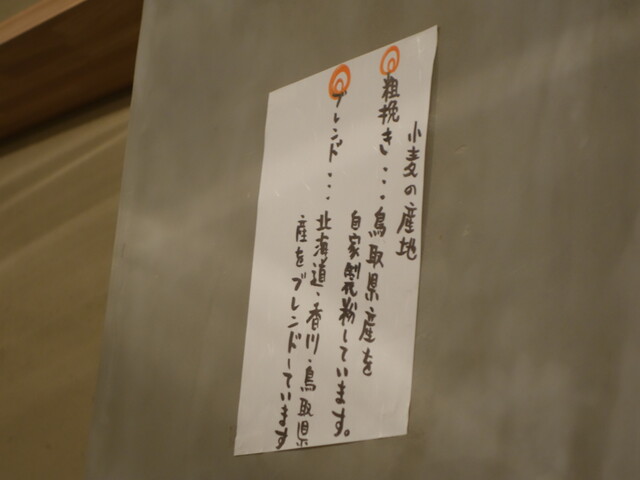 小麦の産地
粗挽き・・・鳥取県産を
自家製粉しています。
ブレンド・・・北海道・香川・鳥取県
産をブレンドしています